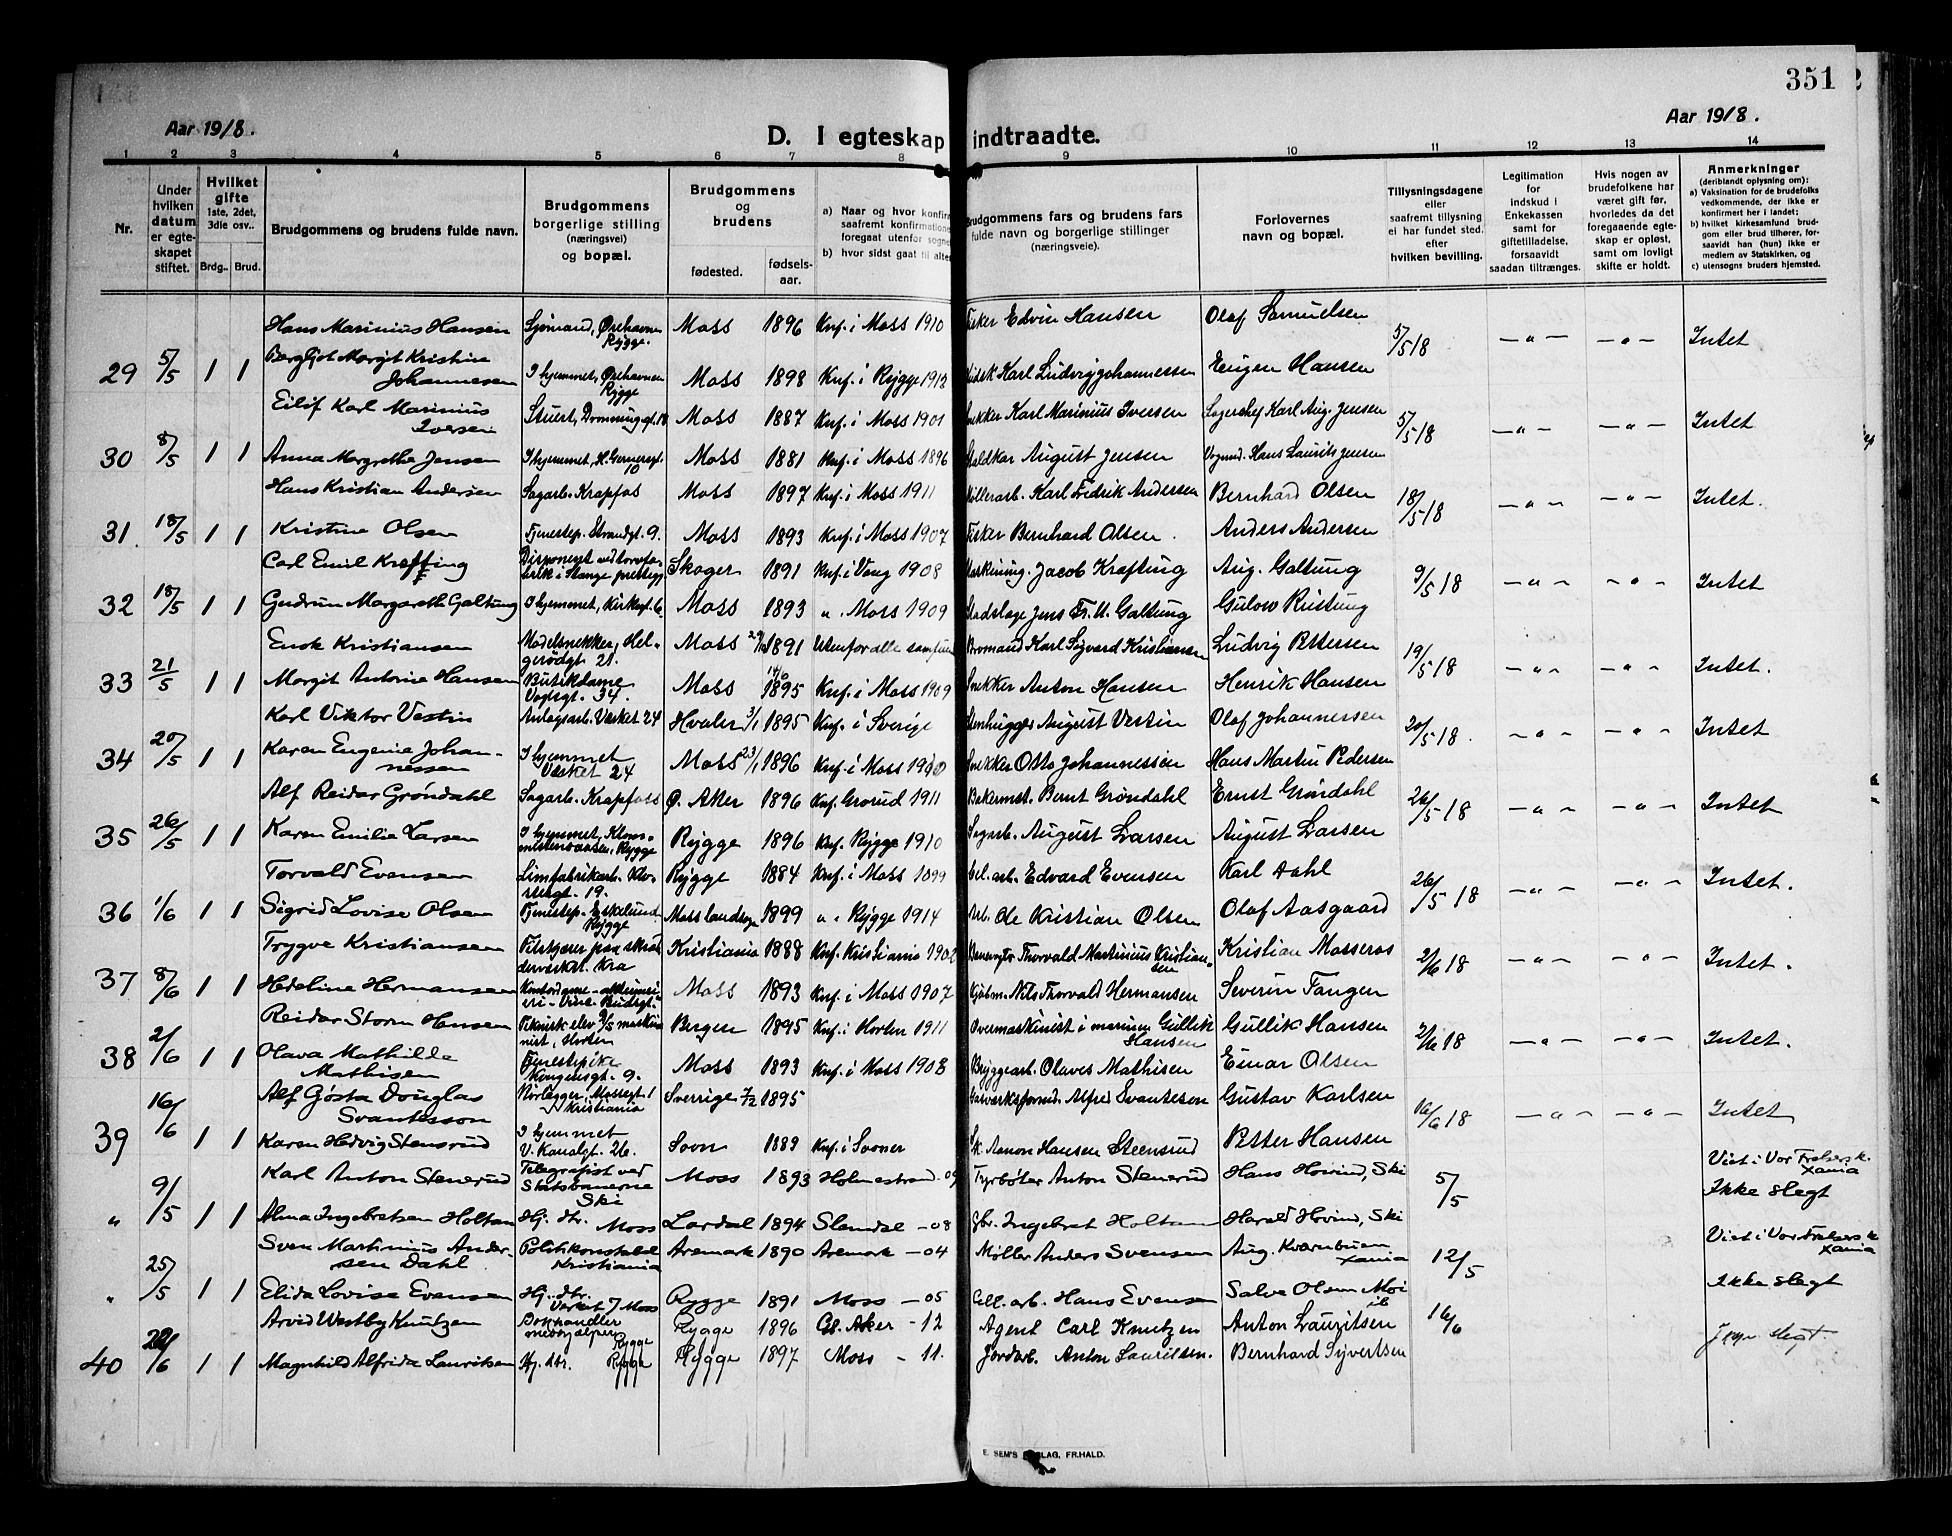 351
Aar 1918.
Aar 1918.
D. I egteskap indtraadte.
1 2 3 4 5 6 7 8 9 10 11 12 13 14
Nr.
Under hvilken datum er egteskapet stiftet.
Hvilket gifte 1ste, 2det, 3die osv..
Brdg. Brud.
Brudgommens og brudens fulde navn.
Brudgommens borgerlige stilling (næringsvei) og bopæl.
Brudgommens og brudens
fødested.
fødselsaar.
a) Naar og hvor konfirm
saafremt konfirmatione
foregaat utenfor sogne
b) hvor sidst gaat til alter
Brudgommens fars og brudens fars fulde navn og borgerlige stillinger (næringsveie).
Forlovernes navn og bopæl.
Tillysningsdagene eller saafremt tillysning ei har fundet sted, efter hvilken bevilling.
Legitimation for indskud i Enkekassen samt for giftetilladelse, forsaavidt saadan tiltrænges.
Hvis nogen av brudefolkene har været gift før, hvorledes da det foregaaende egteskap er opløst, samt om lovligt skifte er holdt.
Anmerkninger
(deriblandt oplysning om):
a) Vaksination for de brudefolks vedkommende, der ikke er konfirmert her i landet;
b) hvilket kirkesamfund brudgom eller brud tilhører, forsaavidt han (hun) ikke er medlem av Statskirken, og
c) utensogns bruders hjemsted.
Hans Marinius Hansen Sjømand, Ørehavnen Rygge. Moss 1896 Knf. i Moss 1910 Fisker Edvin Hansen Olaf Samuelsen 5/5 18 — " — — " — Intet
29 5/5 1 1 Bergljot Margit Kristine Johannesen I hjemmet, Ørehavnen Rygge Moss 1898 Knf. i Rygge 1912 Karl Ludvig Johannessen Eugen Hansen
Eilif Karl Marinius Iversen Stuert, Dronningsgt. 18 Moss 1887 Knf. i Moss 1901 Karl Marinius Iversen Lagerchef Karl Aug. Jensen 5/5 18 — " — — " — Intet
30 8/5 1 1 Anna Margrethe Jensen I hjemmet, H. Gernersgt. 10 Moss 1881 Knf. i Moss 1896 August Jensen Vognmd. Hans Laurits Jensen
Hans Kristian Andersen Sagarb. Krapfos Moss 1897 Knf. i Moss 1911 Møllerarb. Karl Fredrik Andersen Bernhard Olsen 18/5 18 — " — — " — Intet.
31. 18/5 1 1 Kristine Olsen Tjenestep. Strandgt. 9. Moss 1893 Knf. i Moss 1907 Fisker Bernhard Olsen. Anders Andersen
Carl Emil Krafting Disponent ved torvfabrik i Stange prestegj. Skoger 1891 Knf. i Vang 1908 Jacob Krafting Aug. Galtung 9/5 18 — " — — " — Intet
32 18/5 1 1 Gudrun Margareth Galtung I hjemmet, Kirkegt. 6. Moss 1893 " . Moss 1909 Stadslæge Jens Fr. M. Galtung Gulow Ristung
Enok Kristiansen Modelsnekker, Helgerødgt. 21. Moss 1891 Utenfor alle samfun Bromand Karl Sigvard Kristiansen Ludvig Pettersen 19/5 18 — " — — " — Intet.
33 21/5 1 1 Margit Antonie Hansen Butikdame Vogtsgt. 34. Moss 1895 Knf. i Moss 1909 Snekker Anton Hansen Henrik Hansen
Karl Viktor Vestin Anlægsarb. Værket 24 Hvaler 3/1 1895 Knf. i Sverige Stenhugger August Vestin Olaf Johannessen 20/5 18. — " — — " — Intet
34 20/5 1 1 Karen Eugenie Johannessen I hjemmet Værket 24 Moss 23/1 1896 Knf. i Moss 1910 Snekker Otto Johannessen Hans Martin Pedersen
Alf Reidar Grøndahl Sagarb. Krapfoss Ø. Aker 1896 Knf. Grorud 1911 Bakermst. Bernt Grøndahl Ernst Grøndahl 26/5 18 — " — — " — Intet
35 26/5 1 1 Karen Emilie Larsen I hjemmet, Rygge Rygge 1896 Knf. Rygge 1910 Sagarb. August Larsen August Larsen
Torvald Evensen Limfabrikarb. 19. Rygge 1884 Knf. i Moss 1899 Edvard Evensen Karl Dahl 26/5 18 — " — — " — Intet.
36 1/6 1 1 Sigrid Lovise Olsen Tjenestep. Eskelund Rygge Moss landsogn 1899 " . Rygge 1914 Arb. Ole Kristian Olsen Olaf Aasgaard
Trygve Kristiansen Kra Kristiania 1888 Knf. Kristiania 1902 Thorvald Martinius Kristiansen Kristian Mosseros 2/6 18 — " — — " — Intet.
37 8/6 1 1 Hedeline Hermansen Kontordame Moss 1893 Knf. i Moss 1907 Kjøbm. Nils Thorvald Hermansen Severin Tangen
Reidar Storm Hansen Teknisk elev Horten Bergen 1895 Knf. i Horten 1911 Overmaskinist i marinen Gullik Hansen Gullik Hansen 2/6 18 — " — — " — Intet.
38 2/6 1 1 Olava Mathilde Mathisen Tjenestepike Kongensgt. 9. Moss 1893 Knf. i Moss 1908 Bryggearb. Olaves Mathisen Einar Olsen
Alf Gösta Douglas Svantesson Rørlegger, Mossegt. 1 Kristiania Sverrige 7/2 1895 Alfred Svantesen Gustav Karlsen 16/6 18 — " — — " — Intet
39 16/6 1 1 Karen Hedvig Stensrud I hjemmet V. Kanalgt. 26. Sovn 1889 Knf. i Svoner Aanon Hansen Steensrud Petter Hansen
Karl Anton Stenerud Telegrafist ved Statsbanerne Ski Moss 1893 Holmestrand – 09 Fyrbøter Anton Stenerud Hans Hovind, Ski 5/5 Viet i Vor Frelsers k. Xania
" 9/5 1 1 Alma Ingebretsen Holtan Hj. dtr. Moss Lardal 1894 Slendal – 08 Gbr. Ingebret Holtan Harald Hovind, Ski Ikke slegt
Sven Martinius Andersen Dahl Politikonstabel Kristiania Aremark 1890 Aremark – 04 Møller Anders Svensen Aug. Kværnbuen Xania 12/5 Viet i Vor Frelsers k Xania
" 25/5 1 1 Elida Lovise Evensen Hj. dtr. Værket 7 Moss Rygge 1891 Moss – 05 Cell. arb. Hans Evensen Salve Olsen Moi Ikke slegt
Arvid Westby Knutzen Bokhandlermedhjælper Rygge Rygge 1896 Gl. Aker – 12 Agent Carl Knutzen Anton Lauritsen 16/6
40 22/6 1 1 Magnhild Alfrida Lauritsen Hj. dtr. Rygge Rygge 1897 Moss – 11. Jordarb. Anton Lauritsen. Bernhard Syvertsen slegt.
E. SEM'S FORLAG, FR.HALD.